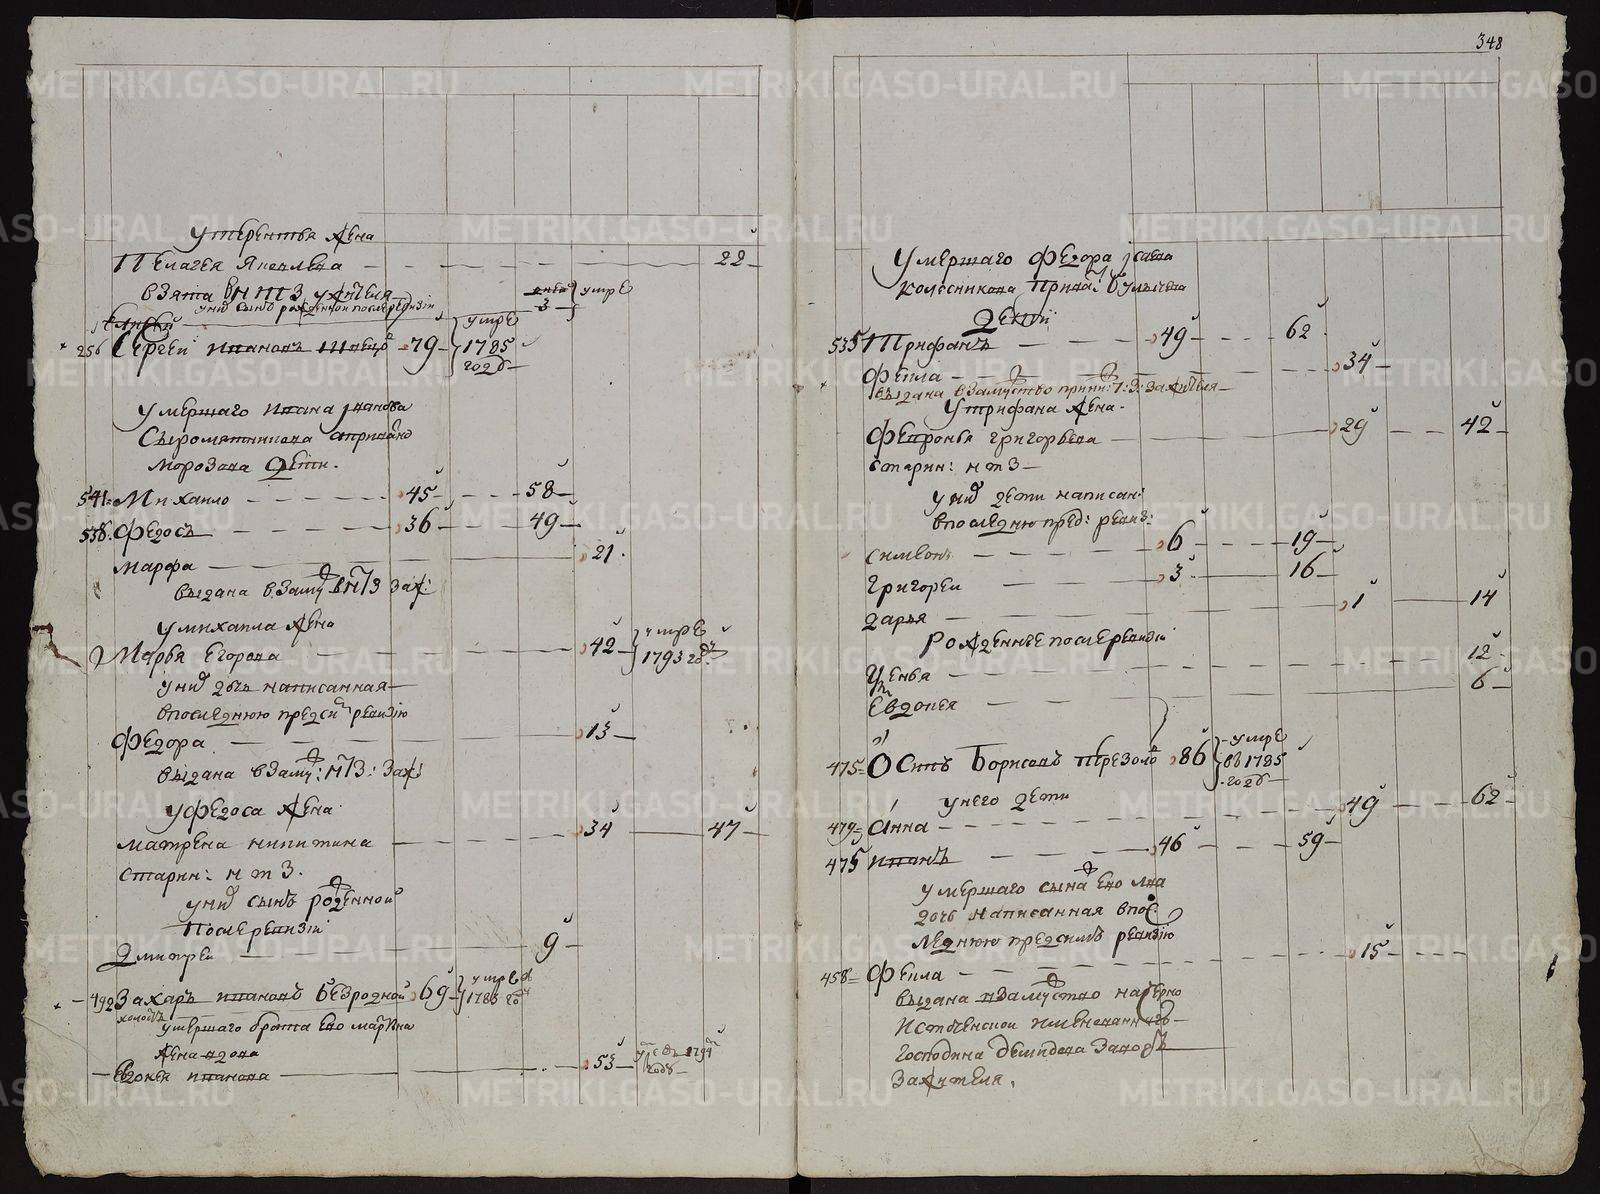 348
у терентья жена
Пелагея яковлева 22
взята в НТЗ у жителя
у них сынъ рожденной после ревизіи
Елисей 3 умре
256 Сергей Ивановъ Швецовъ 79 умре 1785 году
умершаго Ивана Иванова
Сыромятникова а придано
морозова дети
541 Михаило 45 58
538 Федосъ 36 49
марфа 21
выдана в замуж в НТЗ за жи:
у михаила жена
Марья Егорова 42 умре 1793 год
у них дочь написанная
в последнюю пред сим ревизію
Федора 13
выдана в замуж: НТЗ: за жи
у федоса жена
матрена никитина 34 47
старин: НТЗ.
у них сынъ рожденной
после ревизіи
Дмитрей 9
492 Захаръ Ивановъ безродной 69 умре 1783 год
холостъ
умершаго брата Ево маркина
жена вдова
Евдокея Иванова 53
умершаго Федора Исаева
колесникова
дети
535 Трифанъ 49 62
Фекла 34
выдана в замуство
у трифана жена
Февронья григорьева 29 42
старин: НТЗ
у них дети написан:
в последнюю пред: ревиз:
симеонъ 6 19
григорей 3 16
дарья 1 14
рожденные после ревизіи
Устенья 12
Евдокея 6
475 Осипъ Борисовъ 86 умре въ 1785 году
у него дети
479 Анна 49 62
475 Иванъ 46 59
умершаго сына Ево
дочь написанная в пос
леднюю пред симъ ревизію
458 Фекла 15
выдана в замуство на черно
источенской
господина демидова заводъ
за жителя.
METRIKI.GASO-URAL.RU